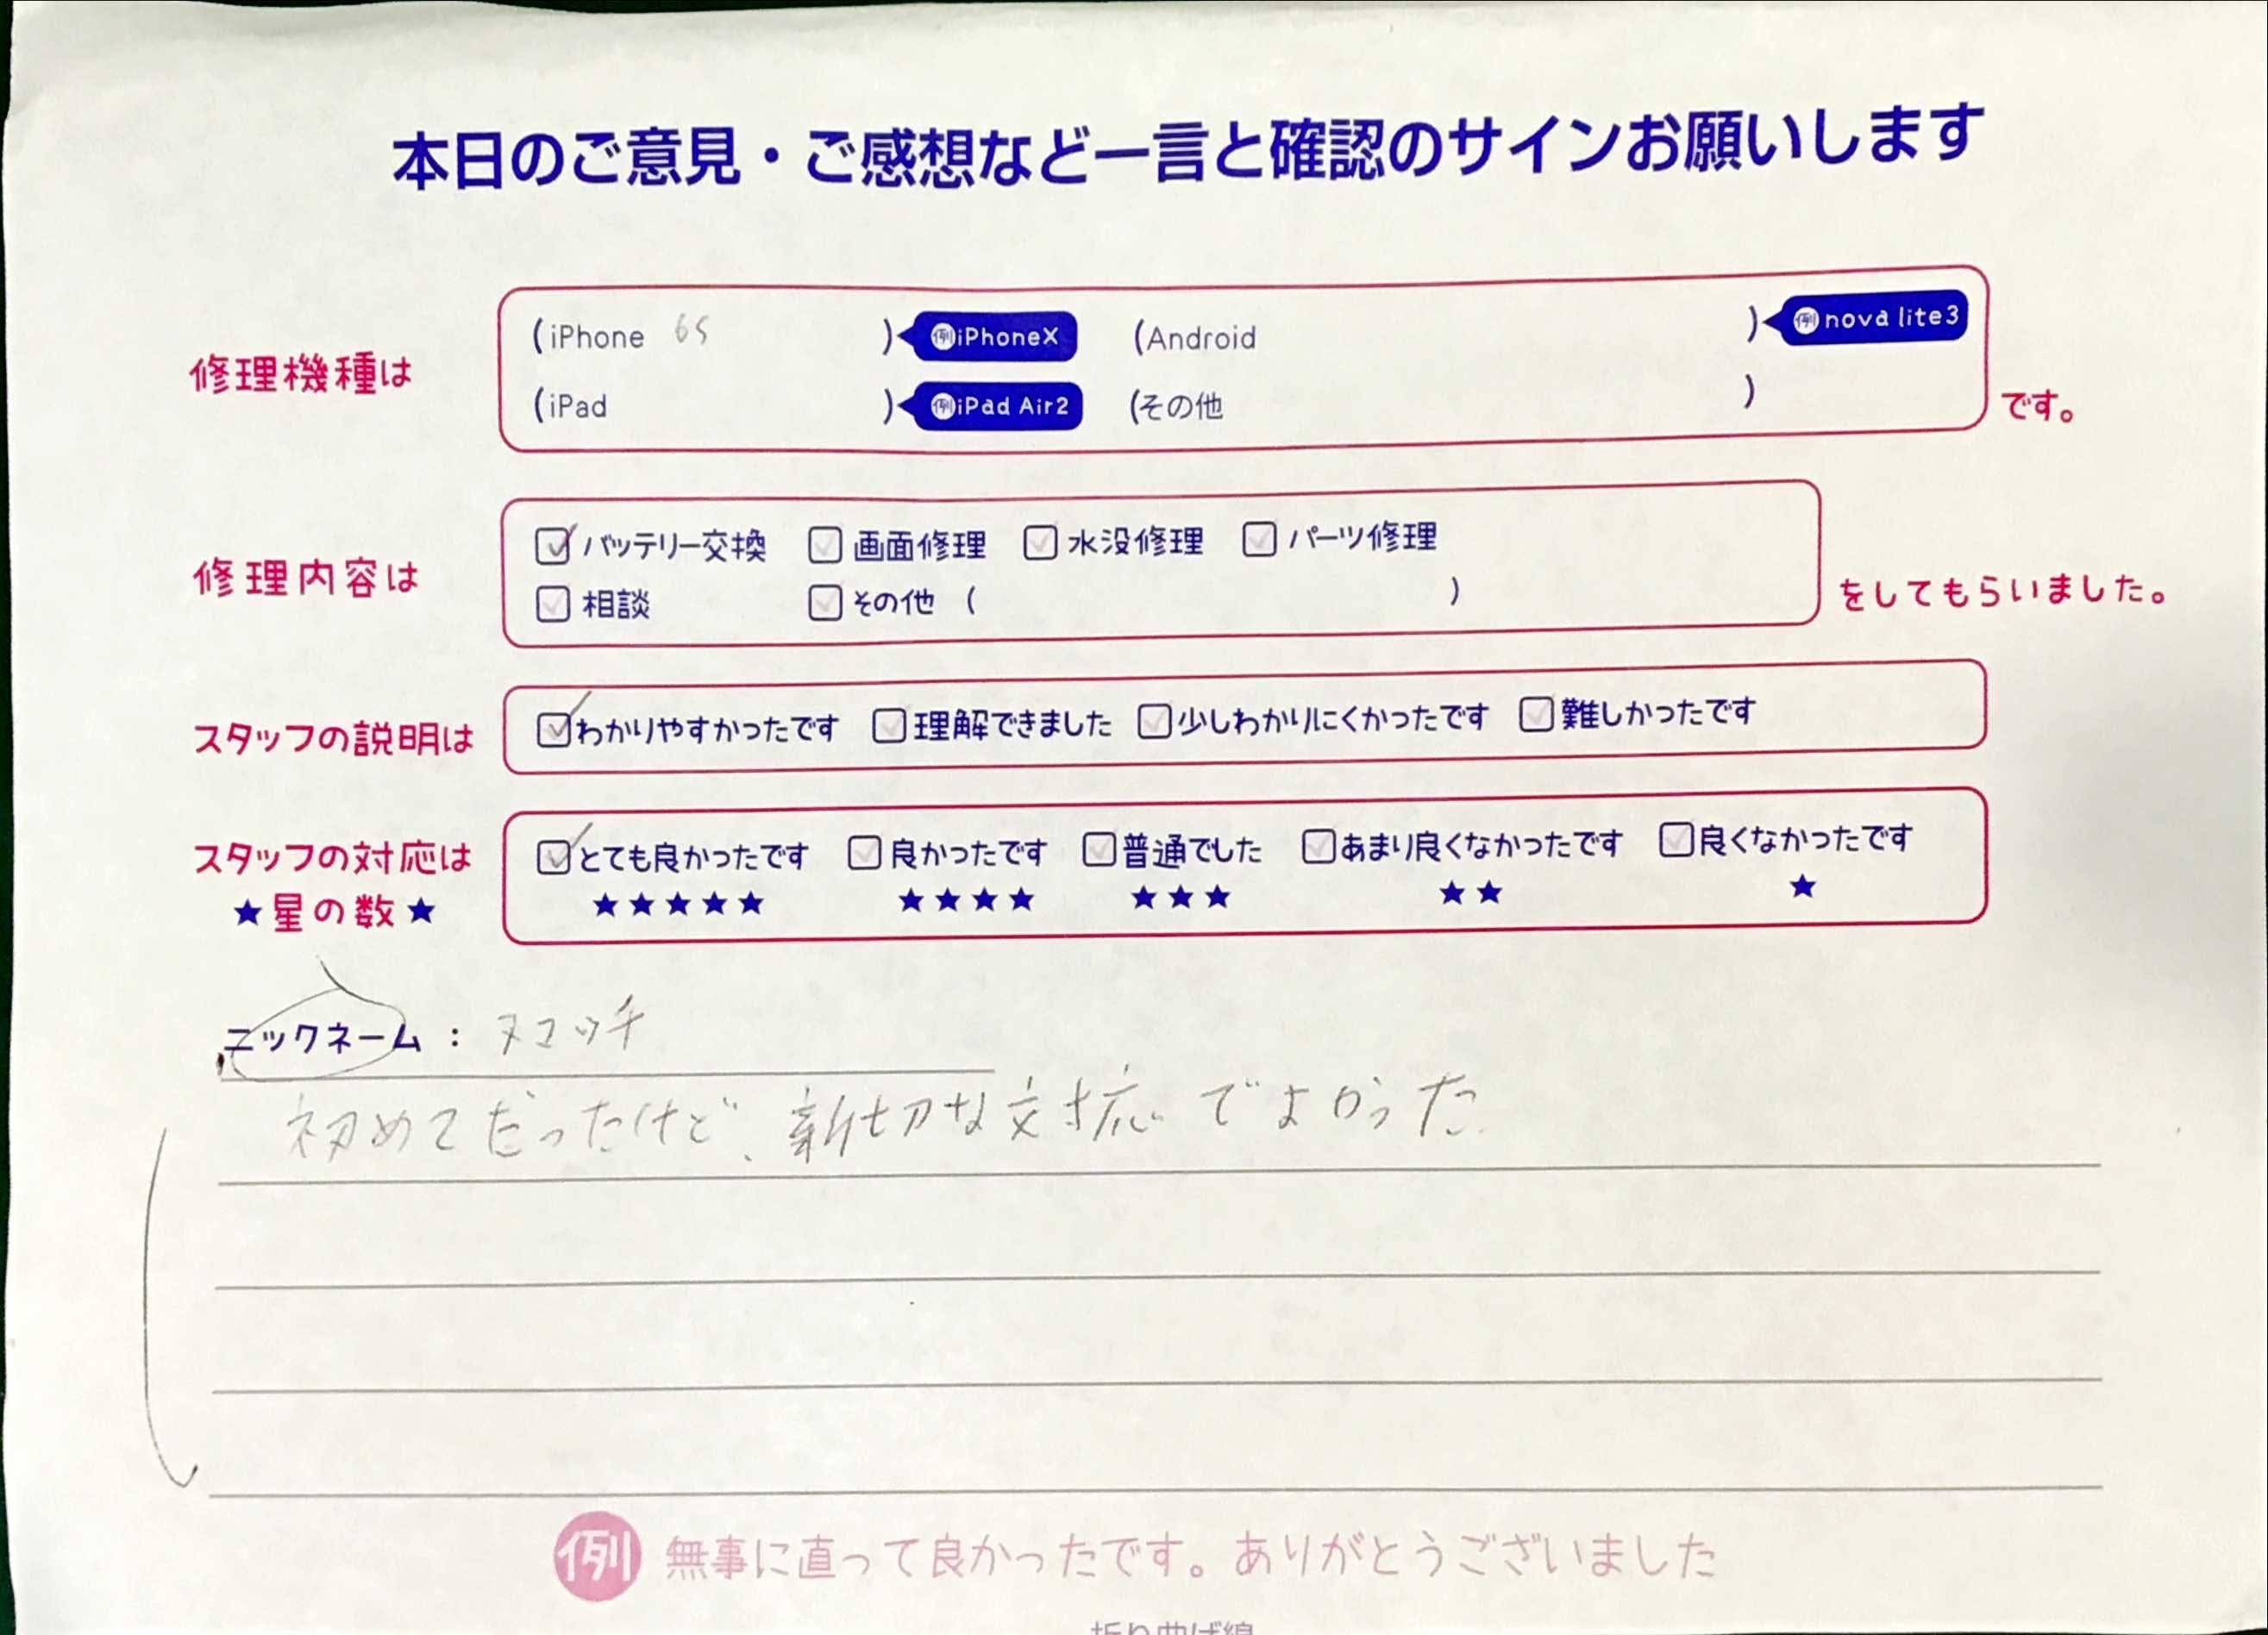 本日のご意見・ご感想など一言と確認のサインお願いします
修理機種は
(iPhone 6S ) 例iPhoneX (Android ) 例nova lite3
(iPad ) 例iPad Air2 (その他 ) です。
修理内容は
バッテリー交換 画面修理 水没修理 パーツ修理
相談 その他 ( ) をしてもらいました。
スタッフの説明は わかりやすかったです 理解できました 少しわかりにくかったです 難しかったです
スタッフの対応は とても良かったです 良かったです 普通でした あまり良くなかったです 良くなかったです
★星の数★ ★★★★★ ★★★★ ★★★ ★★ ★
ニックネーム：ヌマッチ
初めてだったけど、新切な対応でよかった
例 無事に直って良かったです。ありがとうございました
折り曲げ線